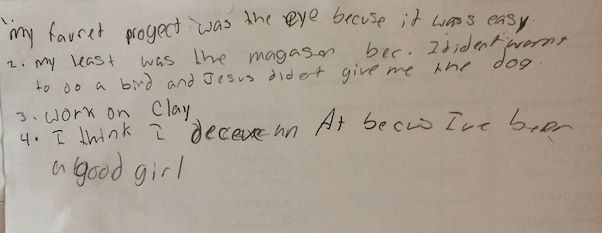 1. my favret progect was the eye becuse it was easy.
2. my least was the magason bec. I dident wornt
to do a bird and Jesus didert give me the dog.
3. work on Clay
4. I think I deceve an At becus Ive been
a good girl